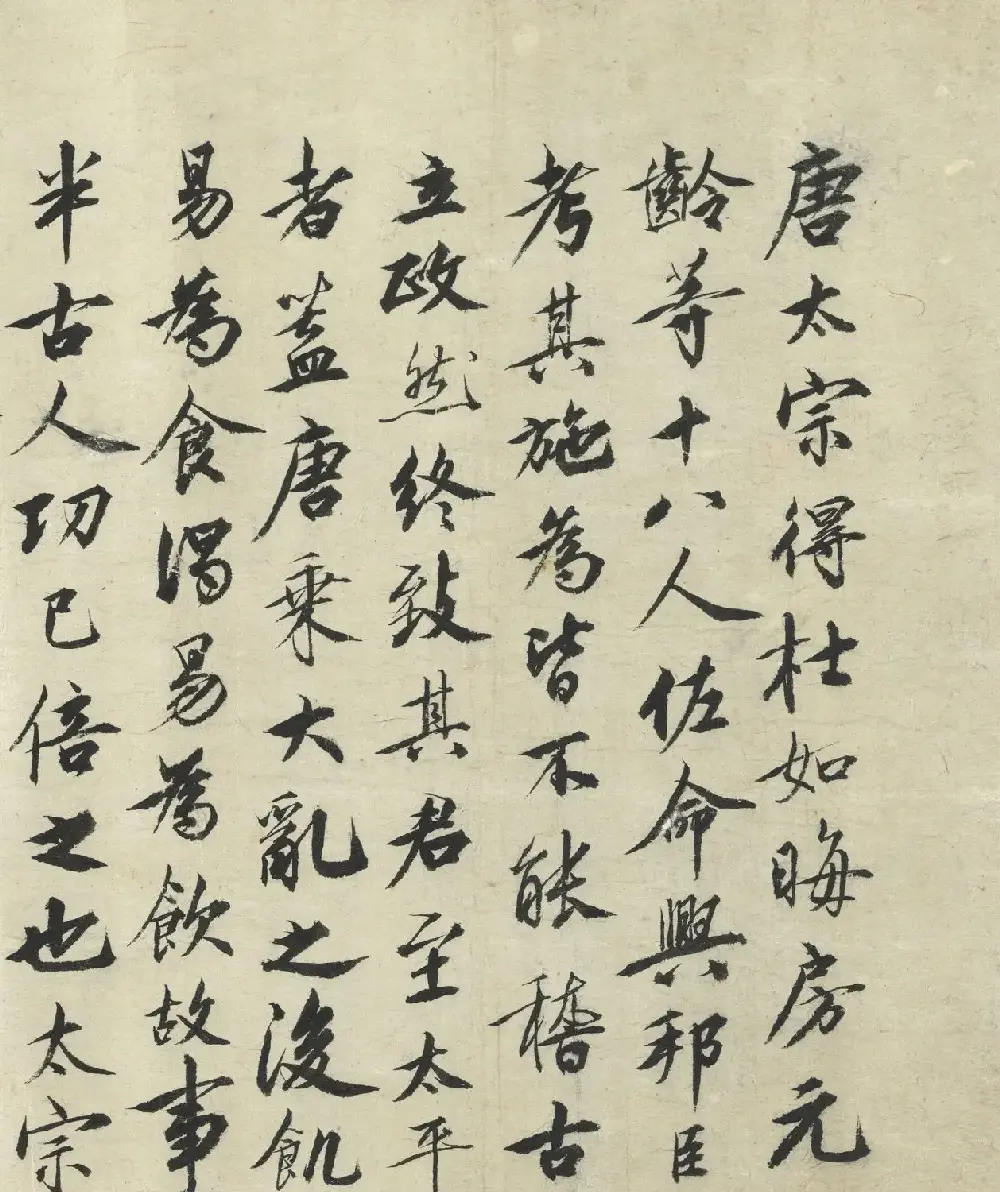 唐太宗得杜如晦房元
齡等十八人佐命興邦臣
考其施為皆不能稽古
立政然終致其君至太平
者蓋唐乗大亂之後飢
易為食渴易為飲故事
半古人功已倍之也太宗